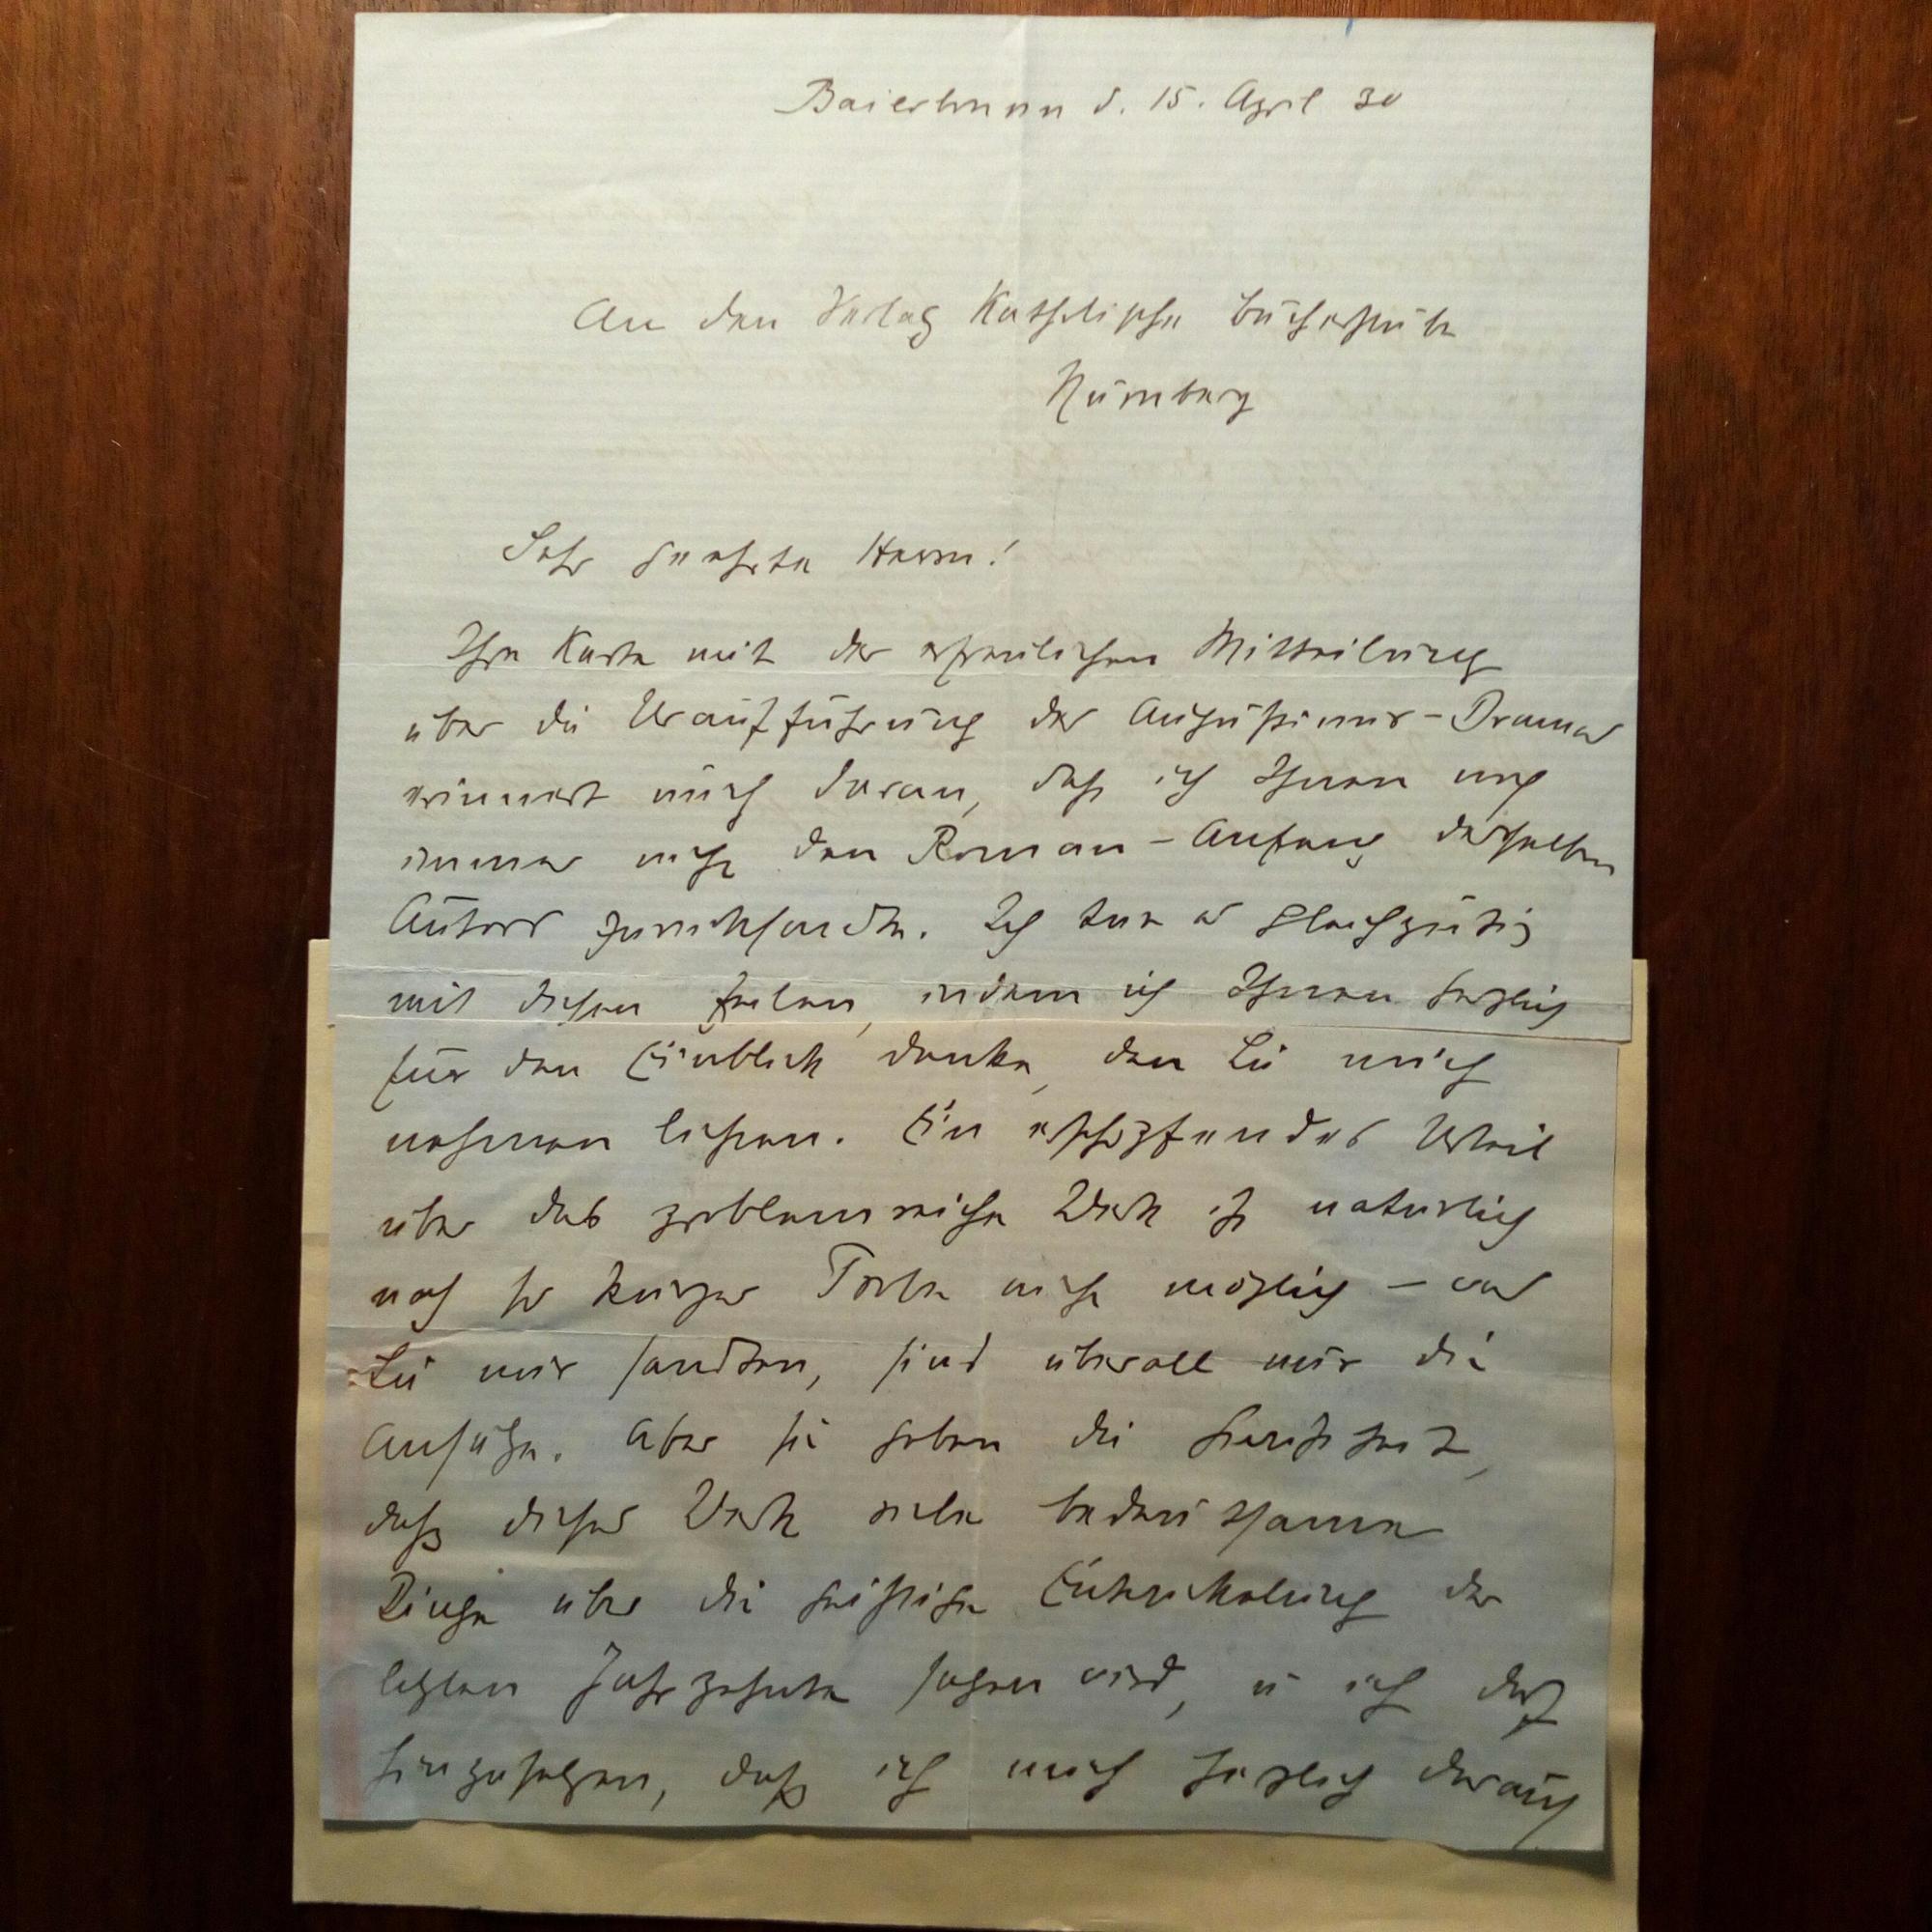 Baierbrunn d. 15. April 30
An den Verlag Katholische Bücherstube
Nürnberg
Sehr geehrte Herrn!
Ihre Karte mit der erfreulichen Mitteilung
über die Uraufführung des Augustinus-Dramas
erinnert mich daran, daß ich Ihnen noch
immer nicht den Roman-Anfang desselben
Autors zurücksandte. Ich tue es gleichzeitig
mit diesen Zeilen, indem ich Ihnen herzlich
für den Einblick danke, den Sie mich
nehmen liessen. Ein erschöpfendes Urteil
über das problemreiche Werk ist natürlich
nach so kurzer Probe nicht möglich – was
Sie mir sandten, sind überall nur die
Ansätze. Aber sie geben die Gewissheit,
daß dieses Werk viele bedeutsame
Dinge über die geistige Entwickelung der
letzten Jahrzehnte sagen wird, u ich darf
hinzusetzen, daß ich mich herzlich darauf